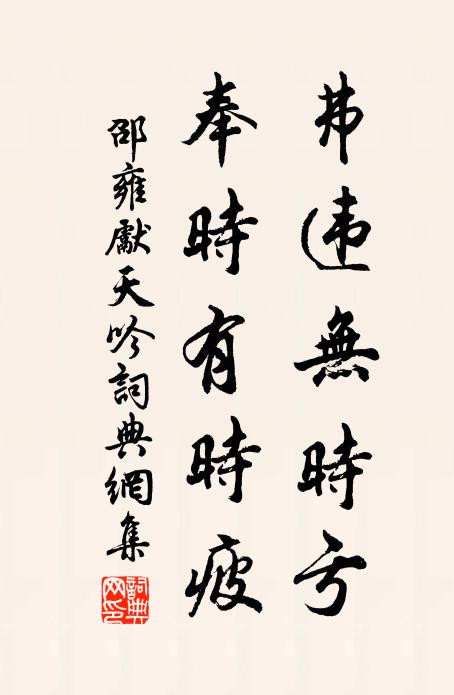 弗违無時亏
奉時有時疲
邵雍獻天吟詞典網集
詞典網印